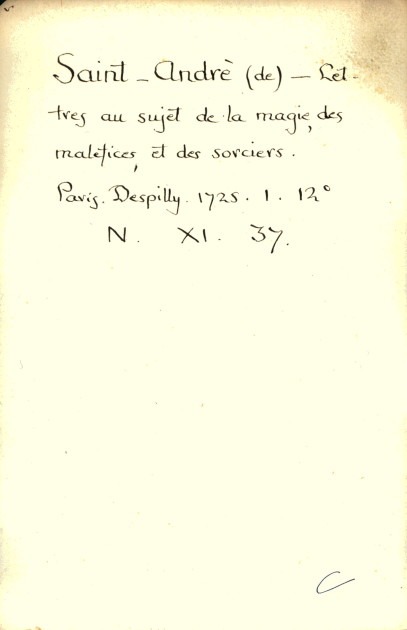 Saint-Andrè (de) — Let-
tres au sujèt de la magie, des
maléfices, èt des sorciers.
Paris. Despilly. 1725. 1. 12°
N. XI. 37.
C